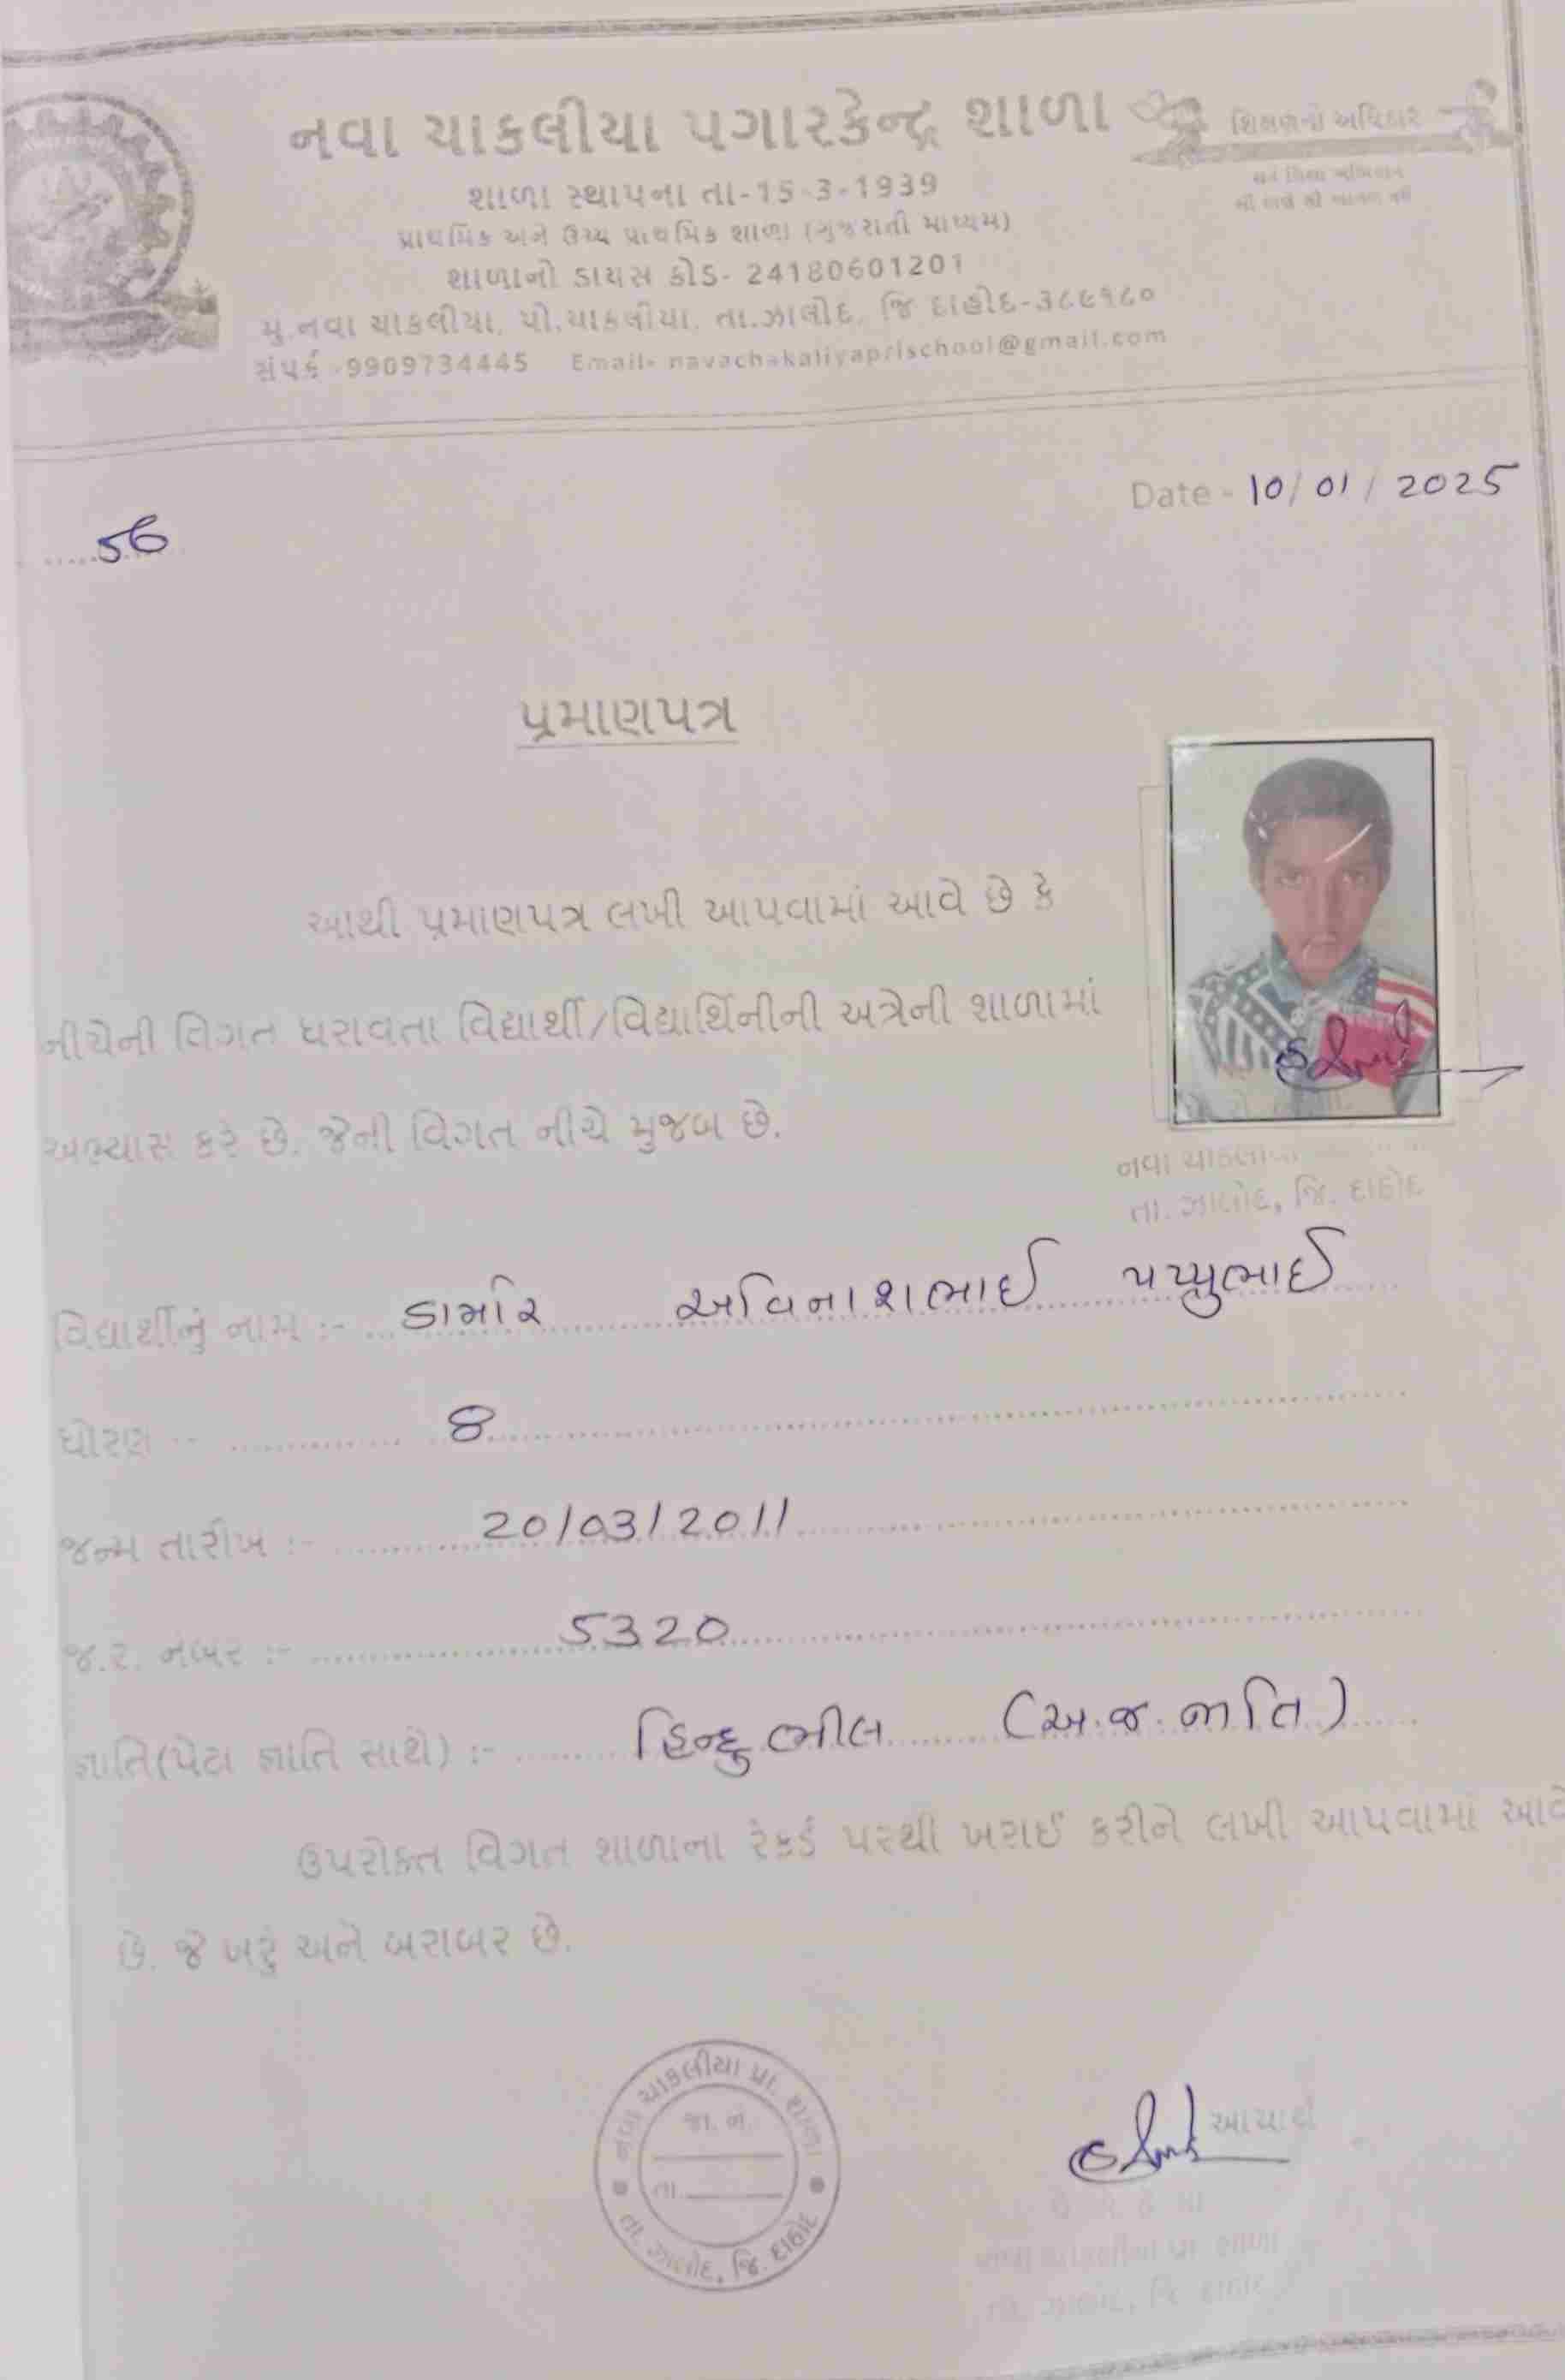 નવા ચાકલીયા પગારકેન્દ્ર શાળા
શિક્ષણનો અધિકાર
શાળા સ્થાપના તા-15-3-1939
પ્રાથમિક અને ઉચ્ચ પ્રાથમિક શાળા (ગુજરાતી માધ્યમ)
શાળાનો ડાયસ કોડ- 24180601201
મુ.નવા ચાકલીયા, પો.ચાકલીયા, તા.ઝાલોદ, જિ દાહોદ-૩૮૯૧૮૦
સંપર્ક -9909734445 Email- navachakaliyaprischool@gmail.com
Date - 10/01/2025
.....56
પ્રમાણપત્ર
આથી પ્રમાણપત્ર લખી આપવામાં આવે છે કે
નીચેની વિગત ધરાવતા વિદ્યાર્થી/વિદ્યાર્થિનીની અત્રેની શાળામાં
અભ્યાસ કરે છે. જેની વિગત નીચે મુજબ છે.
નવા ચાકલીયા
તા. ઝાલોદ, જિ. દાહોદ
વિદ્યાર્થીનું નામ :- ડામોર અવિનાશભાઈ પપ્પુભાઈ
ધોરણ :- 8
જન્મ તારીખ :- 20/03/2011
જ.ર. નંબર :- 5320
જ્ઞાતિ(પેટા જ્ઞાતિ સાથે) :- હિન્દુ ભીલ (અ.જ.જાતિ)
ઉપરોક્ત વિગત શાળાના રેકર્ડ પરથી ખરાઈ કરીને લખી આપવામાં આવે
છે. જે ખરું અને બરાબર છે.
નવા ચાકલીયા પ્રા. શાળા
જા. નં.
તા.
તા. ઝાલોદ, જિ. દાહોદ
આચાર્ય